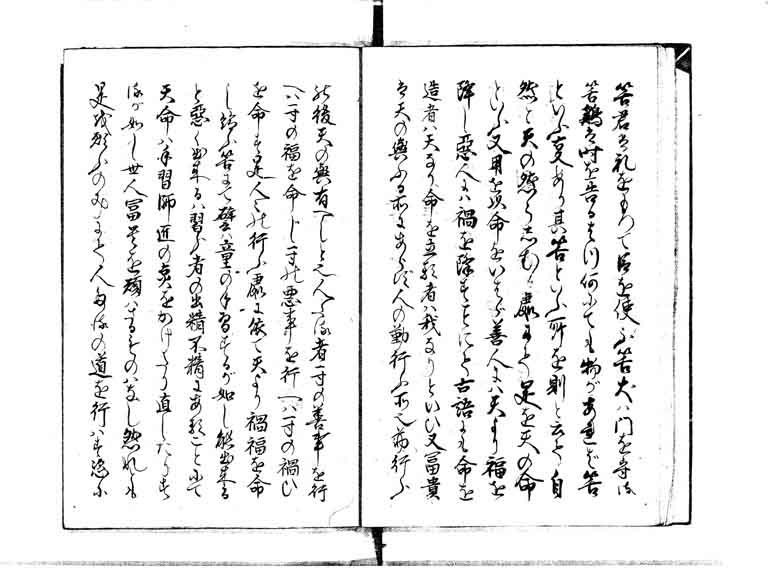 筈君は礼をもつて臣を使ふ筈犬ハ門を守る
筈鶏は時を告るはつ何にても物があれば筈
といふ変あり其筈といふ所を則と云也自
然と天の然らしむる處にして是を天の命
といふ又用を以命をいはゞ善人にハ天より福を
降し悪人にハ禍を降すことにて古語にも命を
造者ハ天なり命を立る者ハ我なりといひ又冨貴
は天の與ふる所にあらず人の勤行ふ所也故行ふ
て後天の與有べしと也人たる者一寸の善事を行
へハ一寸の福を命じ一寸の悪事を行へハ一寸の禍ひ
を命す是人々の行ふ處に依て天より禍福を命
し給ふ筈にて譬バ童の手習するが如し能出来る
と悪く出来るハ習ふ者の出精不精にあることにて
天命ハ手習師匠の点をかけたり直したりす
るが如し世人冨貴を願ハざるものハなし然れども
是を願ふのみにして人たるの道を行ハず徒に